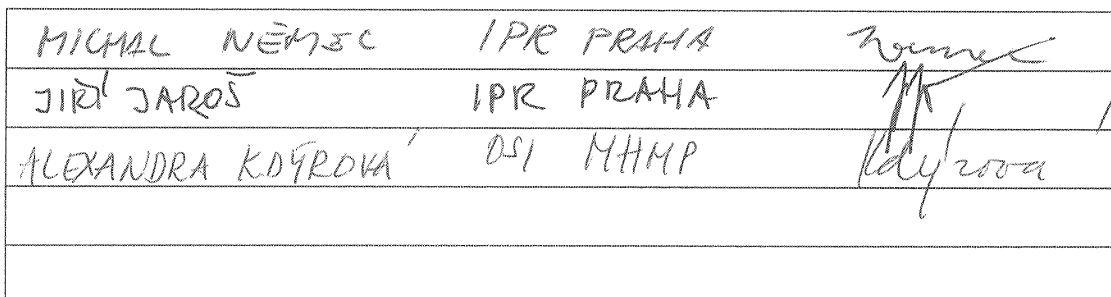 MICHAL NĚMEC IPR PRAHA Němec
JIŘÍ JAROŠ IPR PRAHA
ALEXANDRA KDÝROVÁ OSI MHMP Kdýrová